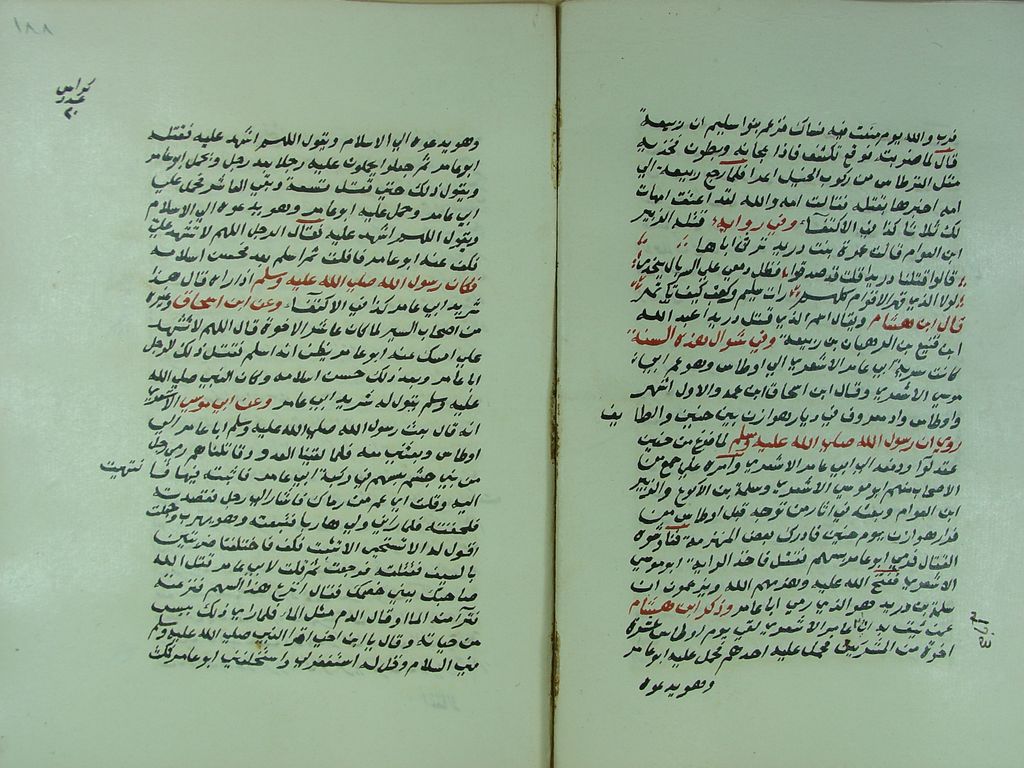 فزعم بنو سليم ان ربيعة
قال لما ضربته فوقع تكشف فاذا عجانه وبطون فخذيه
مثل القرطاس من ركوب الخيل اعراء فلما رجع ربيعة الى
امه اخبرها بقتله فقالت امه والله لقد اعتقت امهات
لك ثلاثا كذا في الاكتفاء وفي رواية قتله الزبير
ابن العوام قالت عمرة بنت دريد ترثي اباها
قالوا قتلنا دريدا قلت قد صدقوا فظل دمعي على السربال ينحدر
لولا الذي قهر الاقوام كلهم رات سليم وكعب كيف تاتمر
قال ابن هشام ويقال اسم الذي قتل دريدا عبد الله
ابن قنيع بن اهبان بن ربيعة وفي شوال هذه السنة
كانت سرية ابي عامر الاشعري الى اوطاس وهو عم ابي
موسى الاشعري وقال ابن اسحاق ابن عمه والاول اشهر
واوطاس واد معروف في ديار هوازن بين حنين والطا يف
روي ان رسول الله صلى الله عليه وسلم لما فرغ من حنين
عقد لواء ودفعه الى ابي عامر الاشعري وامره على جمع من
الاصحاب منهم ابو موسى الاشعري وسلمة بن الاكوع والزبير
ابن العوام وبعثه في اثار من توجه قبل اوطاس من
فرار هوازن يوم حنين فادرك بعض المنهزمة فناوشوه
القتال فرمي ابو عامر بسهم فقتل فاخذ الراية ابو موسى
الاشعري ففتح الله عليه وهزمهم الله ويزعمون ان
سلمة بن دريد هو الذي رمى ابا عامر وذكر ابن هشام
عمن يثق به ان ابا عامر الاشعري لقي يوم اوطاس عشرة
اخوة من المشركين فحمل عليه احدهم فحمل عليه ابو عامر
وهو يدعوه
١٨٨
كراس
وهو يدعوه الى الاسلام ويقول اللهم اشهد عليه فقتله
ابو عامر ثم جعلوا يحملون عليه رجلا بعد رجل ويحمل ابو عامر
ويقول ذلك حتى قتل تسعة وبقي العاشر فحمل على
ابي عامر وحمل عليه ابو عامر وهو يدعوه الى الاسلام
ويقول اللهم اشهد عليه فقال الرجل اللهم لا تشهد علي
فكف عنه ابو عامر فافلت ثم اسلم بعد فحسن اسلامه
فكان رسول الله صلى الله عليه وسلم اذا راه قال هذا
شريد ابي عامر كذا في الاكتفاء وعن ابن اسحاق وغيره
من اصحاب السير لما كان عاشر الاخوة قال اللهم لا تشهد
علي امسك عنه ابو عامر يظن انه اسلم فقتل ذلك الرجل
ابا عامر وبعد ذلك حسن اسلامه وكان النبي صلى الله
عليه وسلم يقول له شريد ابي عامر وعن ابي موسى الاشعري
انه قال بعث رسول الله صلى الله عليه وسلم ابا عامر الى
اوطاس وبعثني معه فلما لقينا العدو وقاتلناهم رمى رجل
من بني جشم بسهم في ركبة ابي عامر فاثبته فيها فا نتهيت
اليه وقلت اي عم من رماك فاشار الى رجل فقصدته
فلحقته فلما راني ولى هاربا فتبعته وهو يهرب وجعلت
اقول له الا تستحيي الا تثبت فكف فاختلفنا ضربتين
بالسيف فقتلته فرجعت ثم قلت لابي عامر قتل الله
صاحبك يعني خصمك فقال انزع هذا السهم فنزعته
من حياته وقال يا ابن اخي اقرا النبي صلى الله عليه وسلم
مني السلام وقل له استغفر لي واستخلفني ابو عامر